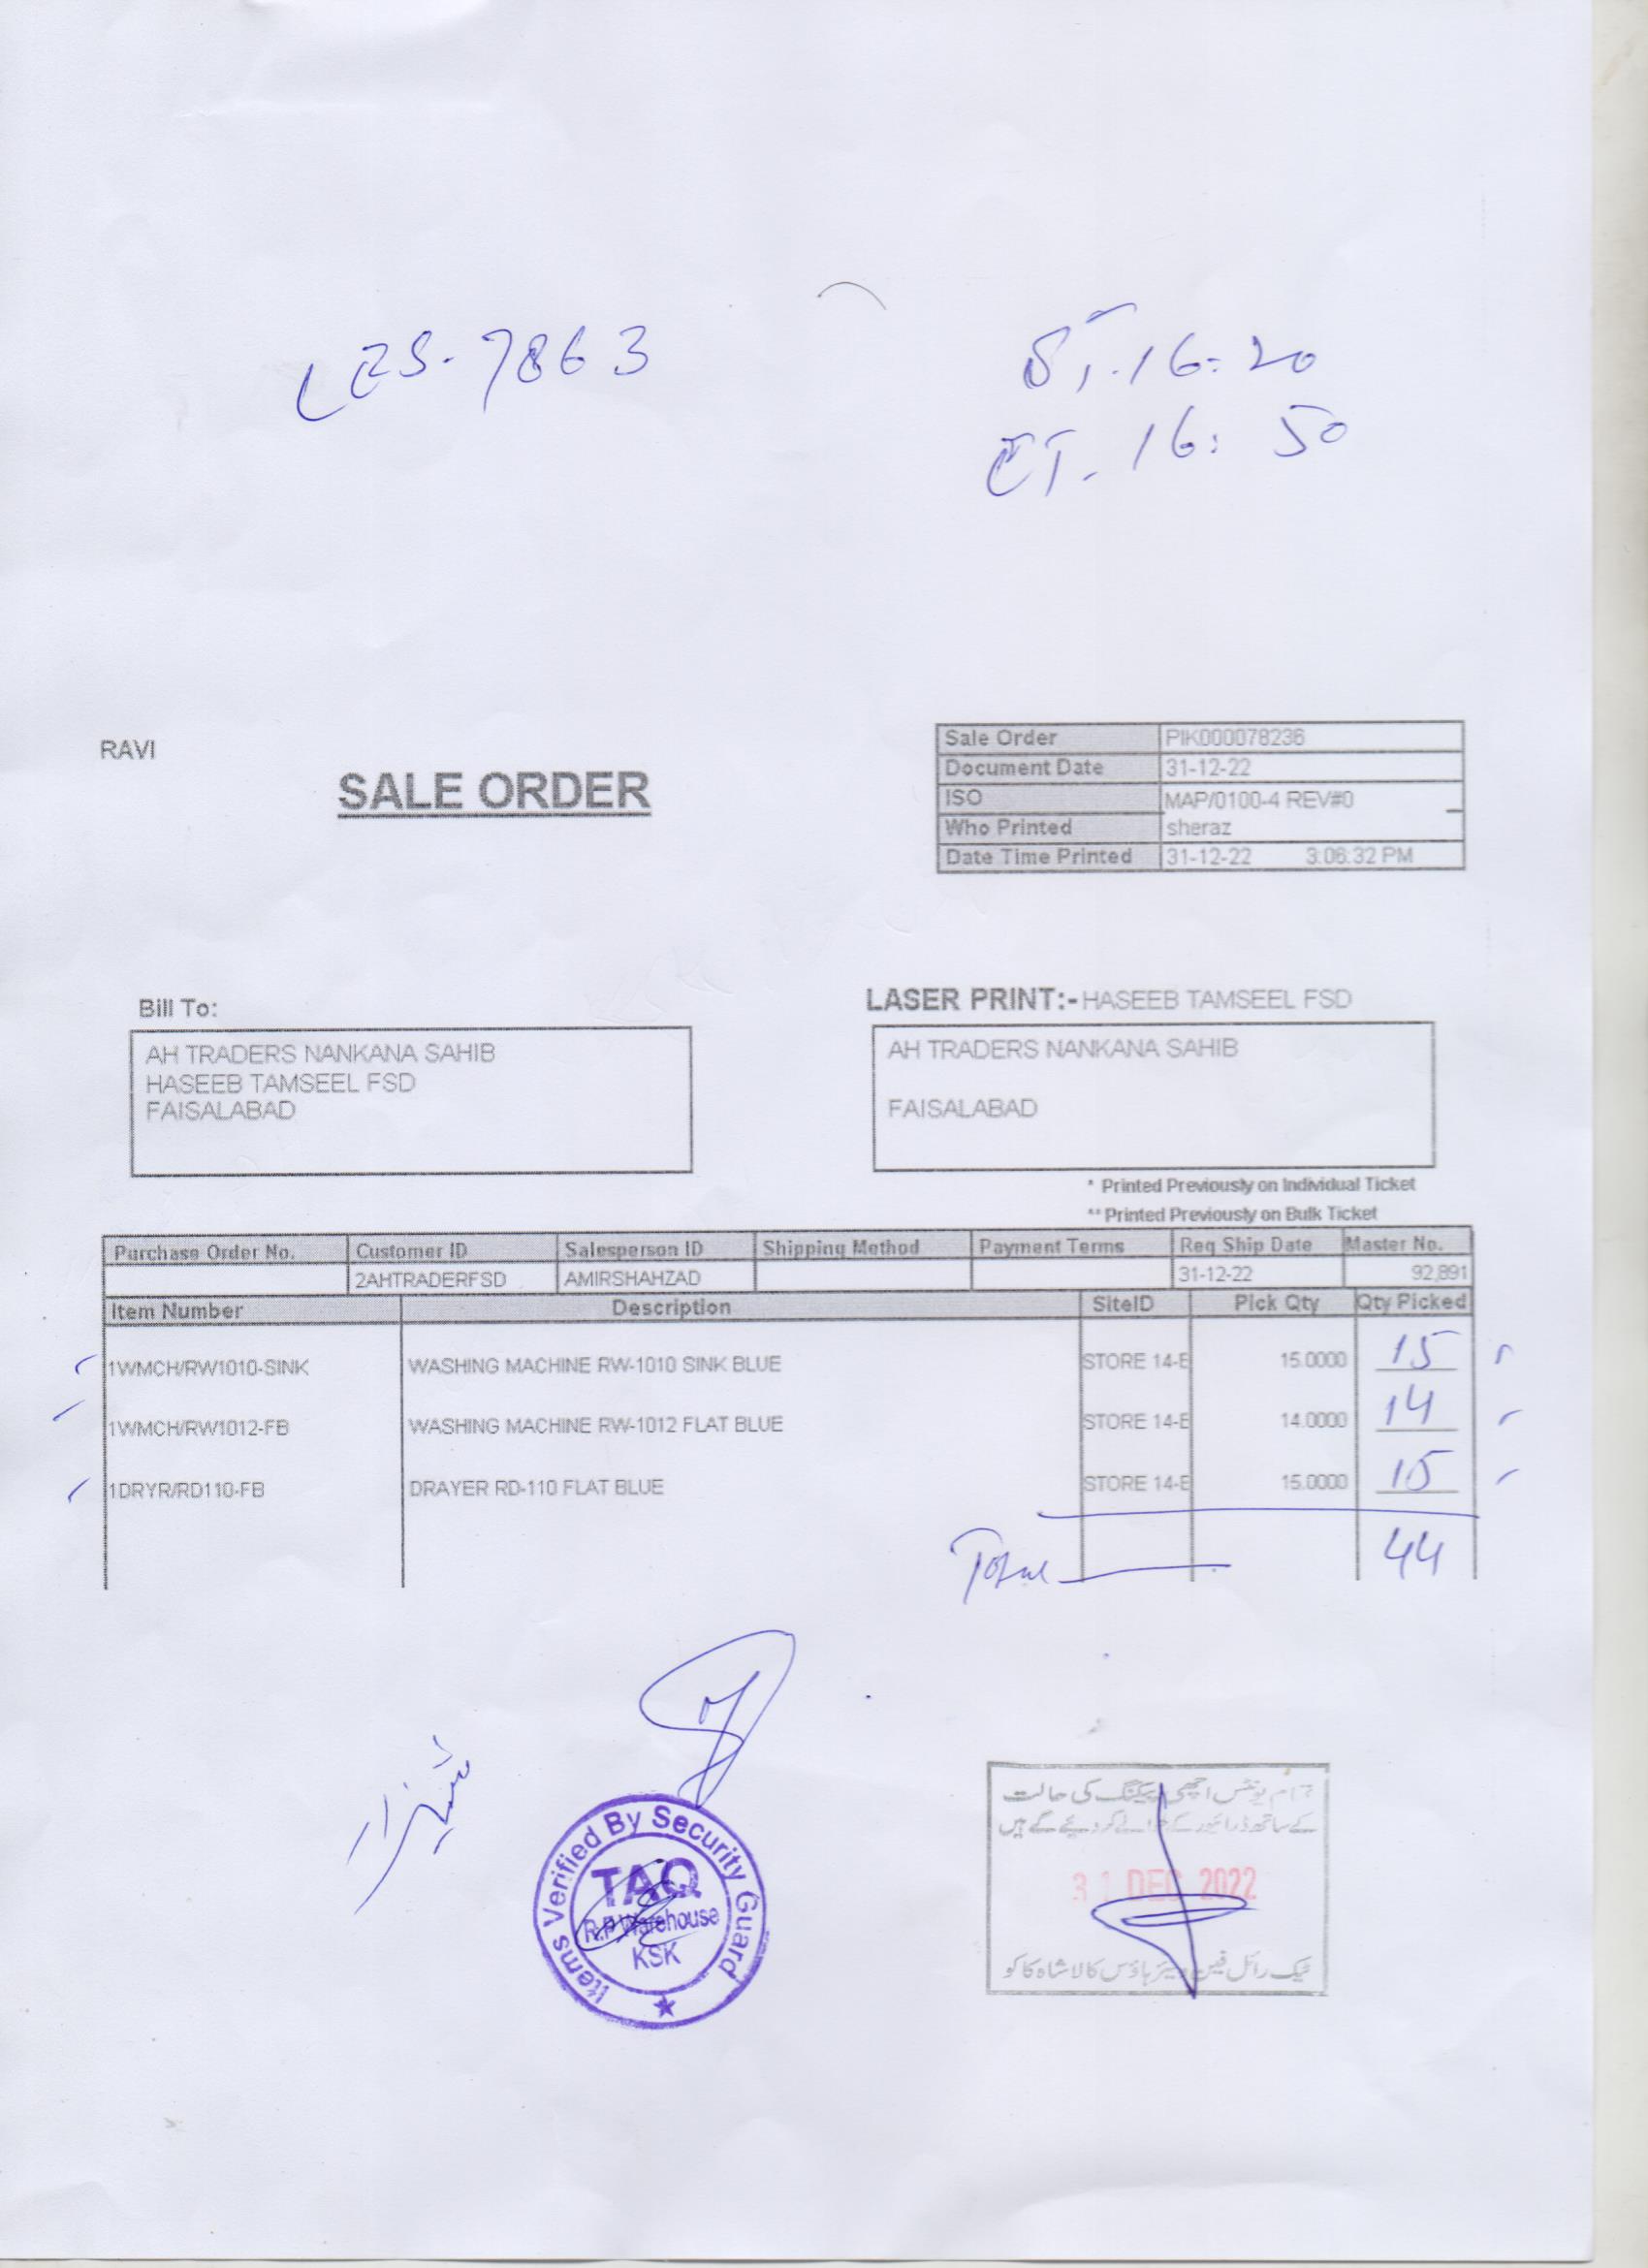 LES-7863
ST.16:20
ET-16:50
RAVI
SALE ORDER
Sale Order PIK000078236
Document Date 31-12-22
ISO MAP/0100-4 REV#0
Who Printed sheraz
Date Time Printed 31-12-22 3:06:32 PM
Bill To:
AH TRADERS NANKANA SAHIB
HASEEB TAMSEEL FSD
FAISALABAD
LASER PRINT:- HASEEB TAMSEEL FSD
AH TRADERS NANKANA SAHIB
FAISALABAD
* Printed Previously on Individual Ticket
** Printed Previously on Bulk Ticket
Purchase Order No. Customer ID Salesperson ID Shipping Method Payment Terms Req Ship Date Master No.
2AHTRADERFSD AMIRSHAHZAD 31-12-22 92,891
Item Number Description SiteID Pick Qty Qty Picked
1WMCH/RW1010-SINK WASHING MACHINE RW-1010 SINK BLUE STORE 14-E 15.0000 15
1WMCH/RW1012-FB WASHING MACHINE RW-1012 FLAT BLUE STORE 14-E 14.0000 14
1DRYR/RD110-FB DRAYER RD-110 FLAT BLUE STORE 14-E 15.0000 15
Total 44
Items Verified By Security Guard
TAQ
R.P Warehouse
KSK
تمام یونٹس اچھی پیکنگ کی حالت
کے ساتھ ڈرائیور کے حوالے کر دیئے گئے ہیں
31 DEC 2022
ٹیک رائل فین ویئر ہاؤس کالا شاہ کاکو